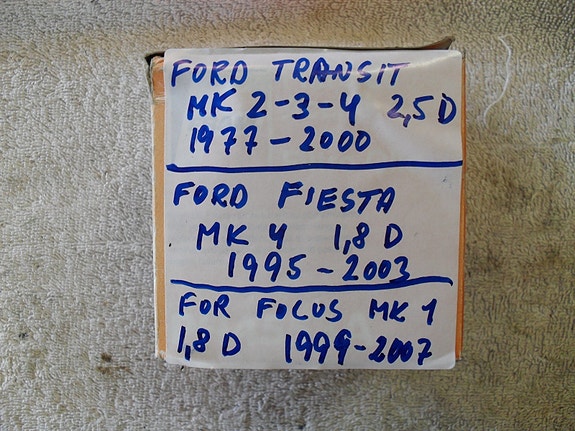 FORD TRANSIT
MK 2-3-4 2,5D
1977-2000
FORD FIESTA
MK 4 1,8 D
1995-2003
FOR FOCUS MK 1
1,8 D 1999-2007